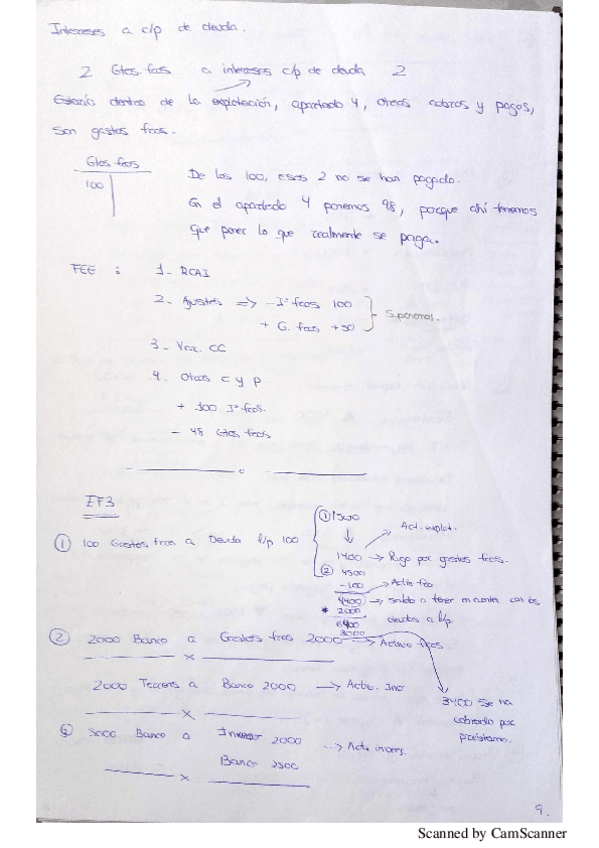 Intereses a c/p de deuda.
2 Gtos fcos a intereses c/p de deuda 2
Estaría dentro de la explotación, apartado 4, otros cobros y pagos,
son gastos fcos.
Gtos fcos
100
De los 100, esos 2 no se han pagado.
En el apartado 4 ponemos 98, porque ahí tenemos
que poner lo que realmente se paga.
FEE : 1_ RCAI
2_ Ajustes => - Iº fcos 100
+ G. fcos +50
Suponemos.
3_ Var. CC
4_ Otros c y p.
+ 100 Iº fcos.
- 48 Gtos fcos
EF3
① 100 Gastos fcos a Deuda l/p 100
① 1500
Act. explot.
1400 → Pago por gastos fcos.
② 4500
-100
4400 → saldo a tener en cuenta con las
deudas a l/p
* 2000
6400
3000
② 2000 Banco a Gastos fcos 2000 → Activo fcos.
2000 Terrenos a Banco 2000 → Actv. Inv
3400 Se ha
cobrado por
préstamo.
Banco a 2000 → Act. invers.
Banco
9.
Scanned by CamScanner